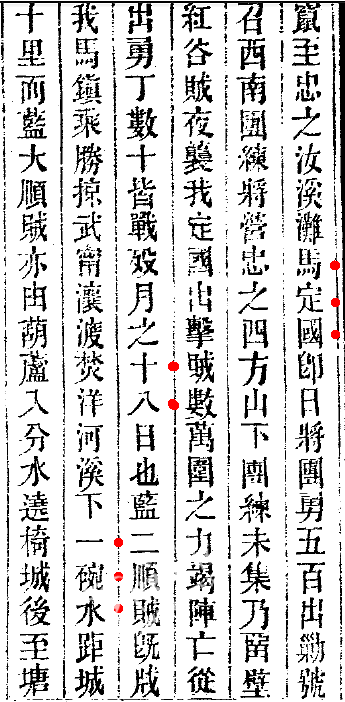 竄至忠之汝溪灘馬定國卽日將團勇五百出勦號
召西南團練將營忠之四方山下團練未集乃畱壁
紅谷賊夜襲我定國出擊賊數萬圍之力竭陣亡從
出勇丁數十皆戰歿月之十八日也藍二順賊旣戕
我馬鎮乘勝掠武甯瀼渡焚洋河溪下一碗水距城
十里而藍大順賊亦由葫蘆入分水遶椅城後至塘